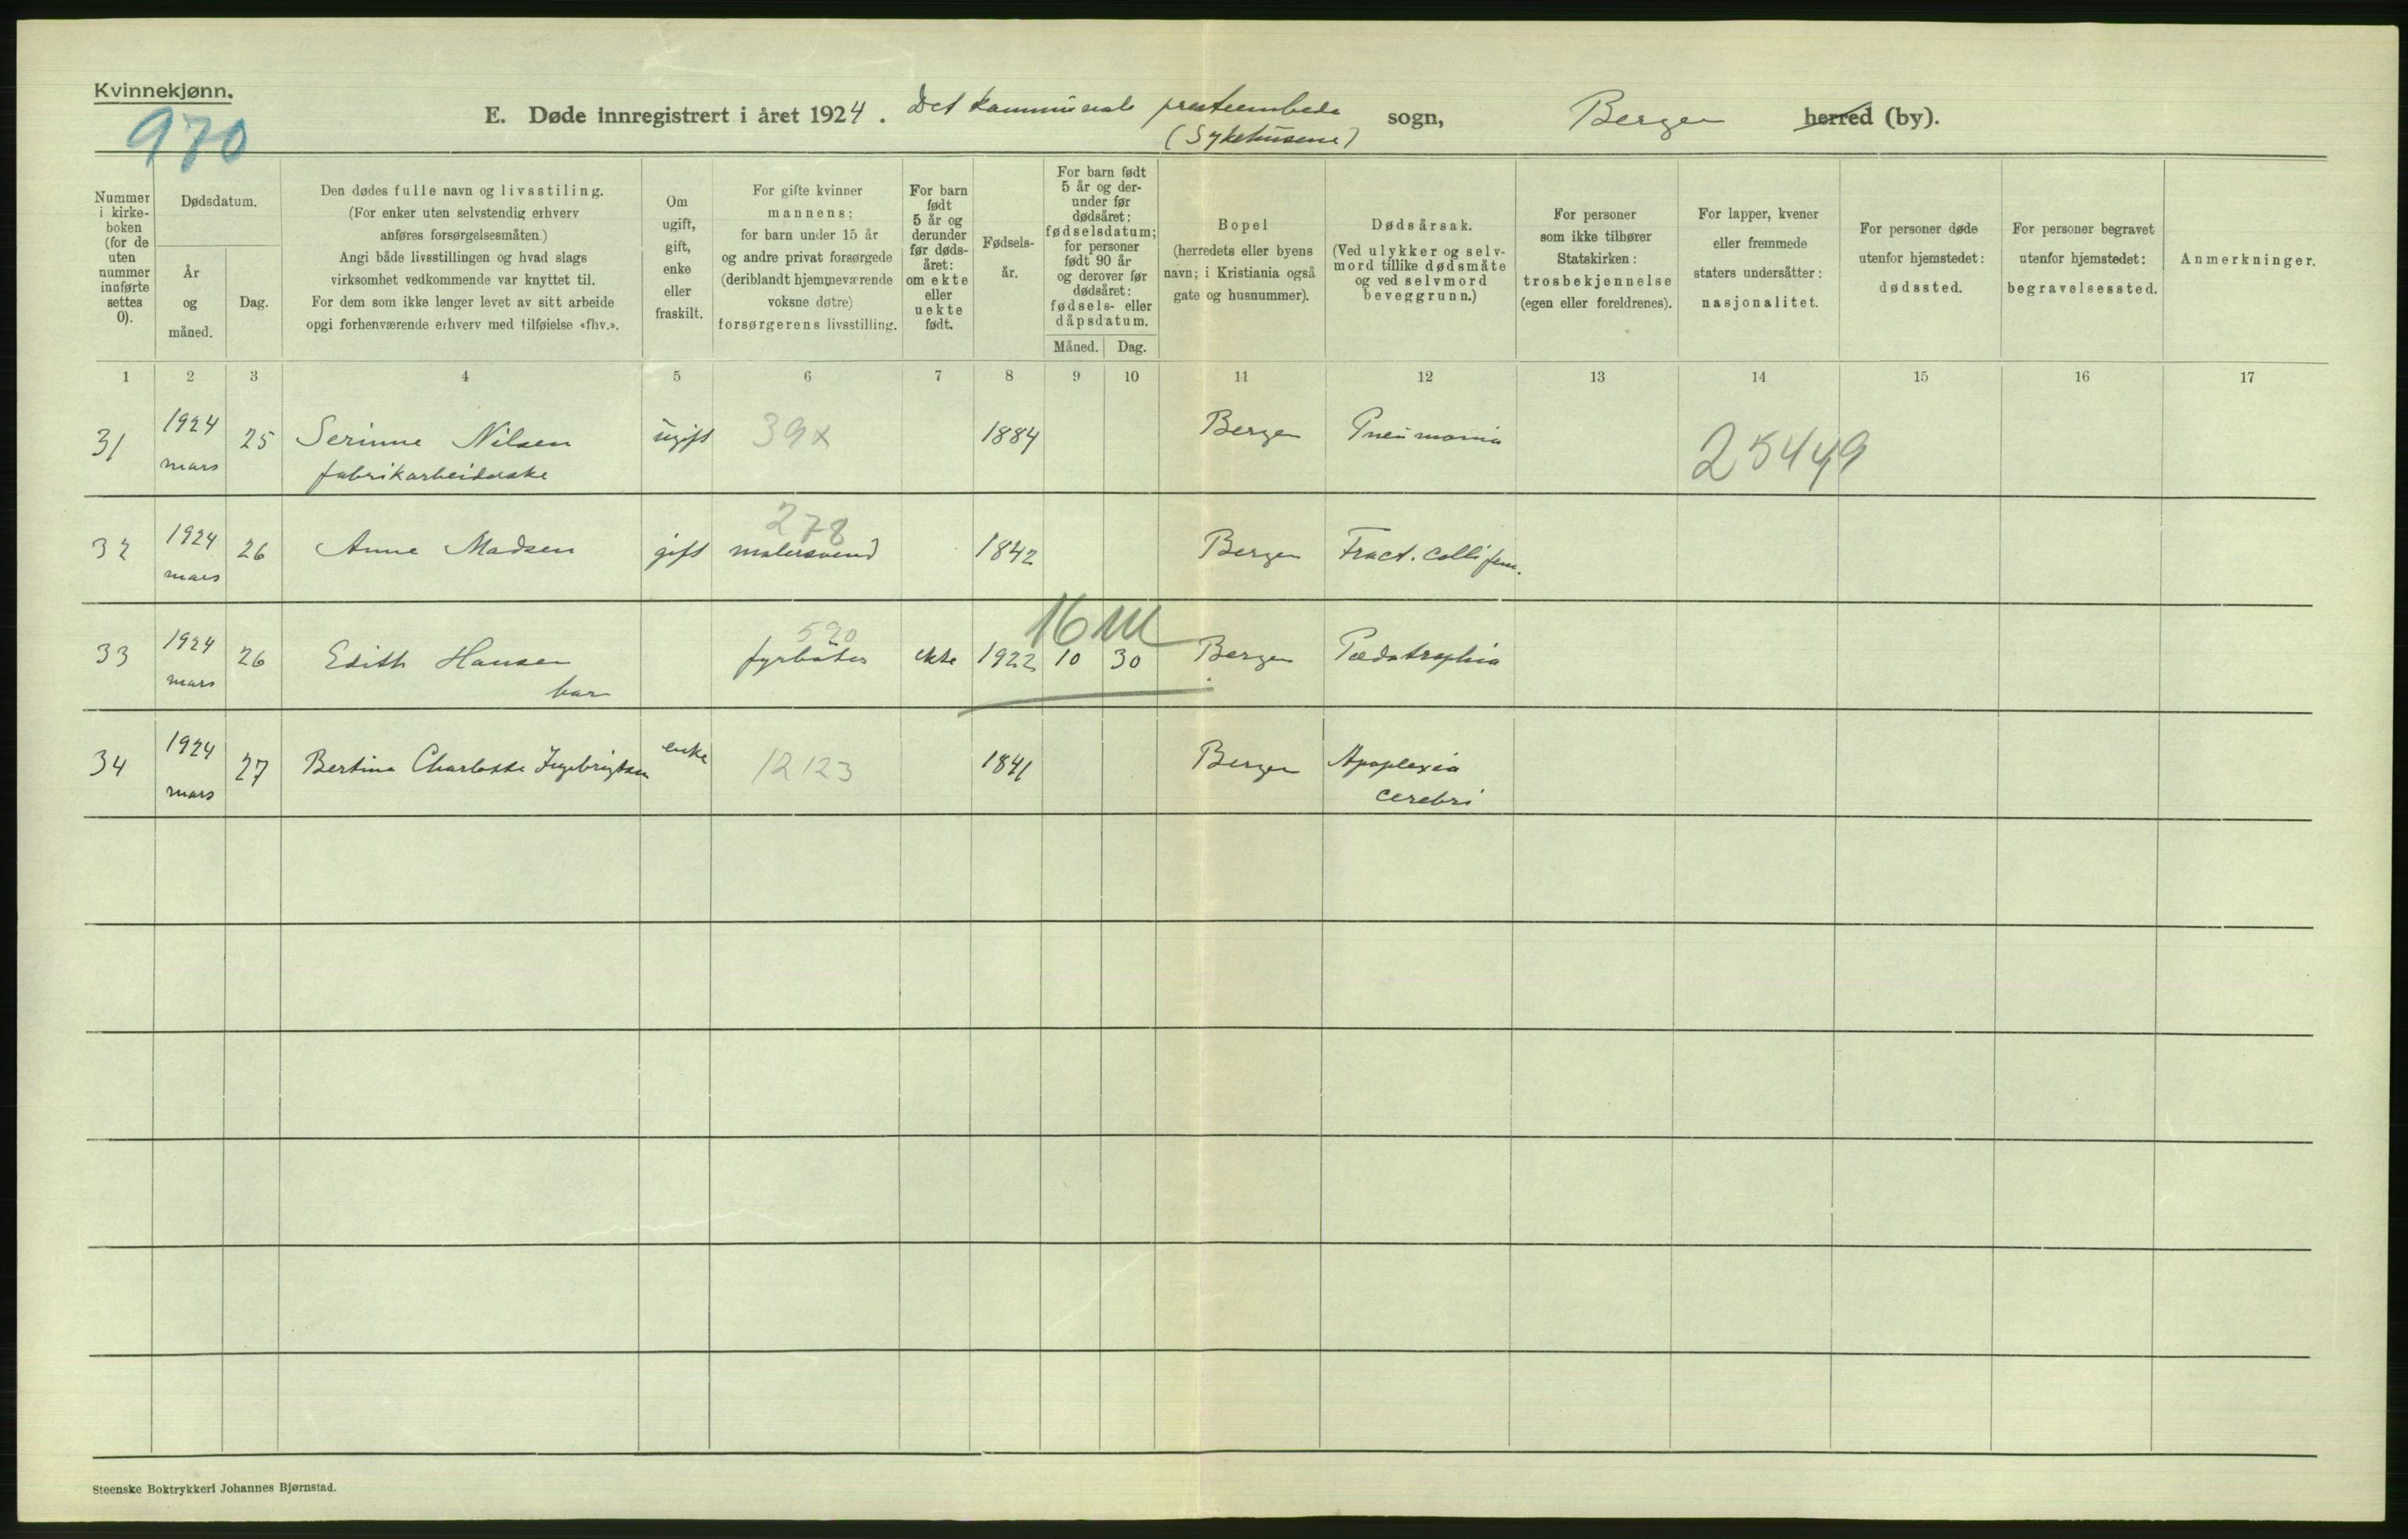 Kvinnekjønn.
970
E. Døde innregistrert i året 1924. Det kommunale presteembede sogn, Bergen herred (by).
(Sykehusene)
Nummer i kirkeboken (for de uten nummer innførte settes 0).
Dødsdatum.
År og måned.
Dag.
Den dødes fulle navn og livsstiling.
(For enker uten selvstendig erhverv
anføres forsørgelsesmåten.)
Angi både livsstillingen og hvad slags
virksomhet vedkommende var knyttet til.
For dem som ikke lenger levet av sitt arbeide
opgi forhenværende erhverv med tilføielse «fhv.».
Om
ugift,
gift,
enke
eller
fraskilt.
For gifte kvinner
mannens;
for barn under 15 år
og andre privat forsørgede
(deriblandt hjemmeværende
voksne døtre)
forsørgerens livsstilling.
For barn
født
5 år og
derunder
før døds-
året:
om ekte
eller
uekte
født.
Fødsels-
år.
For barn født
5 år og der-
under før
dødsåret:
fødselsdatum;
for personer
født 90 år
og derover før
dødsåret:
fødsels- eller
dåpsdatum.
Måned. Dag.
Bopel
(herredets eller byens
navn; i Kristiania også
gate og husnummer).
Dødsårsak.
(Ved ulykker og selv-
mord tillike dødsmåte
og ved selvmord
beveggrunn.)
For personer
som ikke tilhører
Statskirken:
trosbekjennelse
(egen eller foreldrenes).
For lapper, kvener
eller fremmede
staters undersåtter:
nasjonalitet.
For personer døde
utenfor hjemstedet:
dødssted.
For personer begravet
utenfor hjemstedet:
begravelsessted.
Anmerkninger.
1 2 3 4 5 6 7 8 9 10 11 12 13 14 15 16 17
31 1924 mars 25 Serinne Nilsen ugift 39x 1884 Bergen Pneumonia 25449
fabrikarbeiderske
278
32 1924 mars 26 Anne Madsen gift malersvend 1842 Bergen Fract. colli fem.
590 16 m
33 1924 mars 26 Edith Hansen fyrbøter ekte 1922 10 30 Bergen Pædatrophia
barn
34 1924 mars 27 Bertine Charlotte Ingebrigtsen enke 12123 1841 Bergen Apoplexia
cerebri
Steenske Boktrykkeri Johannes Bjørnstad.